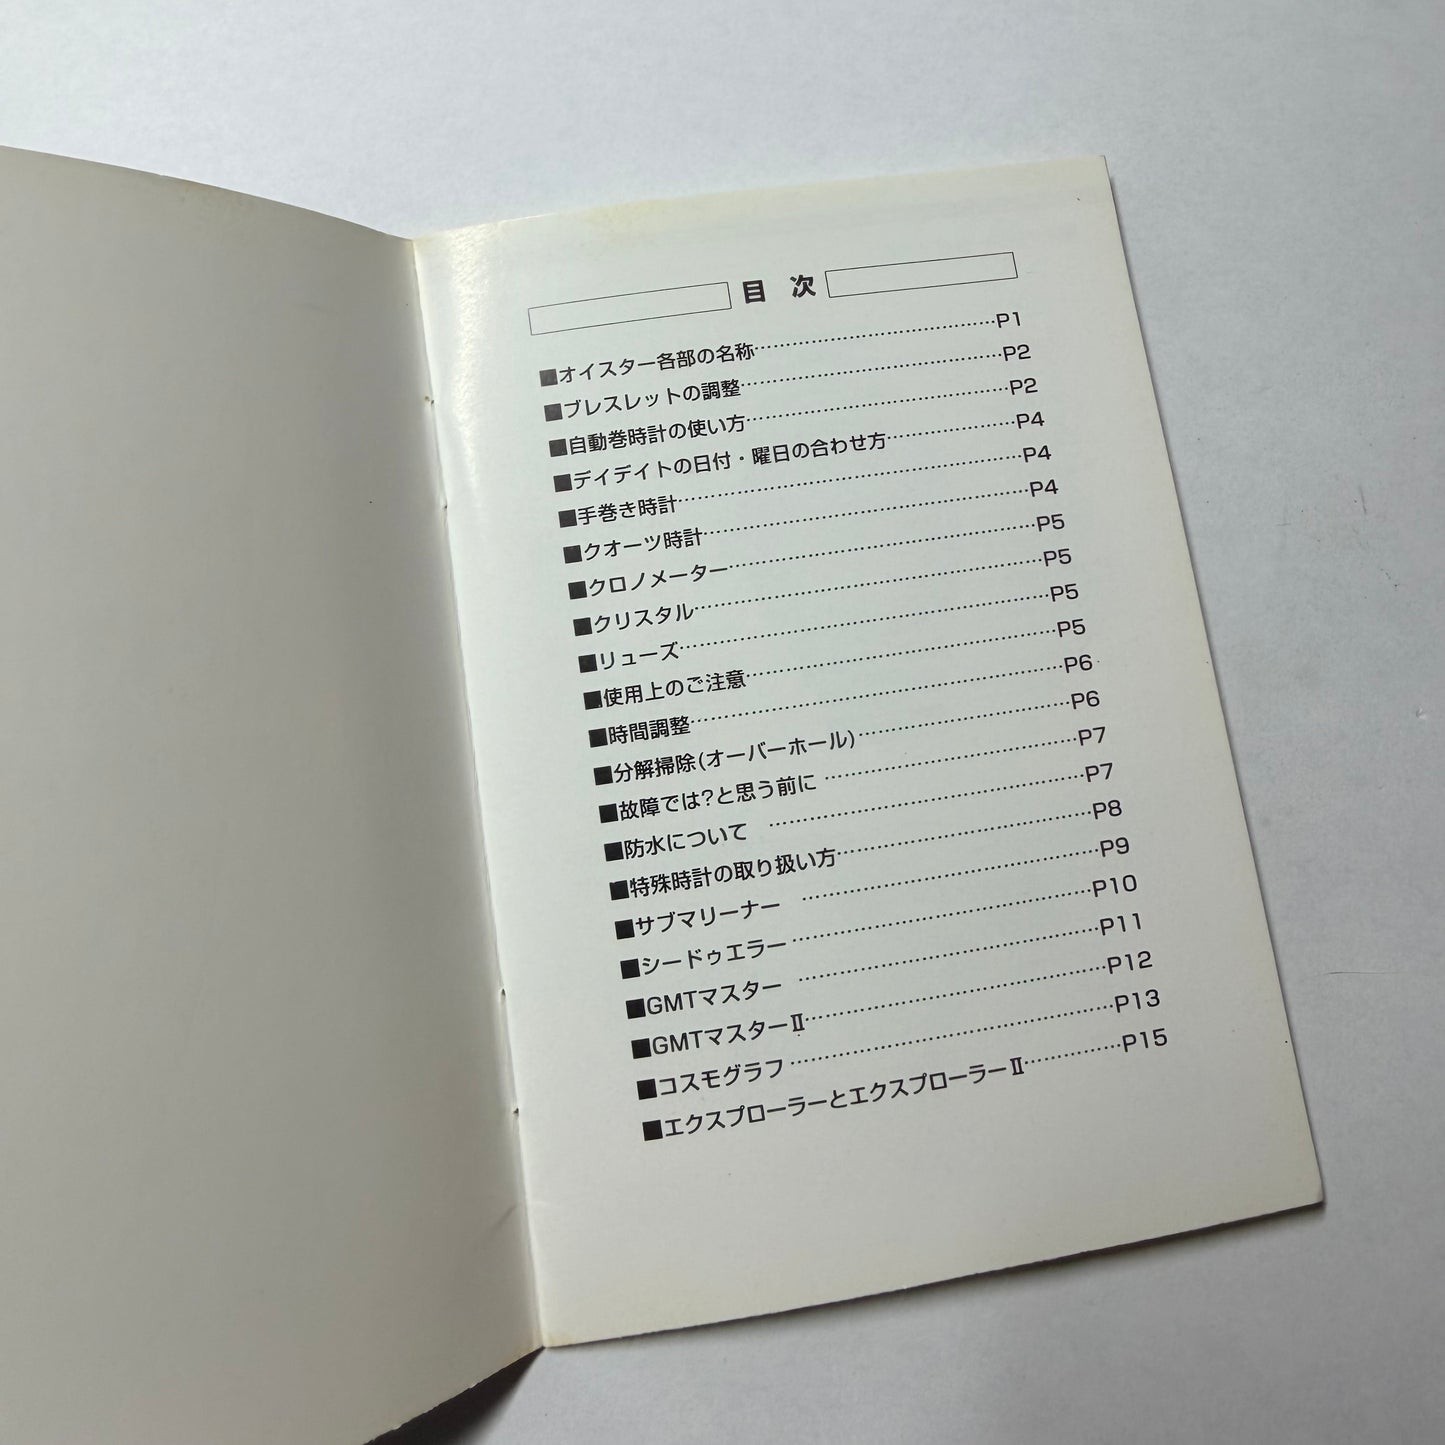 目 次
■オイスター各部の名称…………………………………P1
■ブレスレットの調整……………………………………P2
■自動巻時計の使い方……………………………………P2
■デイデイトの日付・曜日の合わせ方…………………P4
■手巻き時計………………………………………………P4
■クオーツ時計……………………………………………P4
■クロノメーター…………………………………………P5
■クリスタル………………………………………………P5
■リューズ…………………………………………………P5
■使用上のご注意…………………………………………P5
■時間調整…………………………………………………P6
■分解掃除(オーバーホール)……………………………P6
■故障では?と思う前に …………………………………P7
■防水について ……………………………………………P7
■特殊時計の取り扱い方…………………………………P8
■サブマリーナー …………………………………………P9
■シードゥエラー …………………………………………P10
■GMTマスター ……………………………………………P11
■GMTマスターⅡ…………………………………………P12
■コスモグラフ ……………………………………………P13
■エクスプローラーとエクスプローラーⅡ……………P15